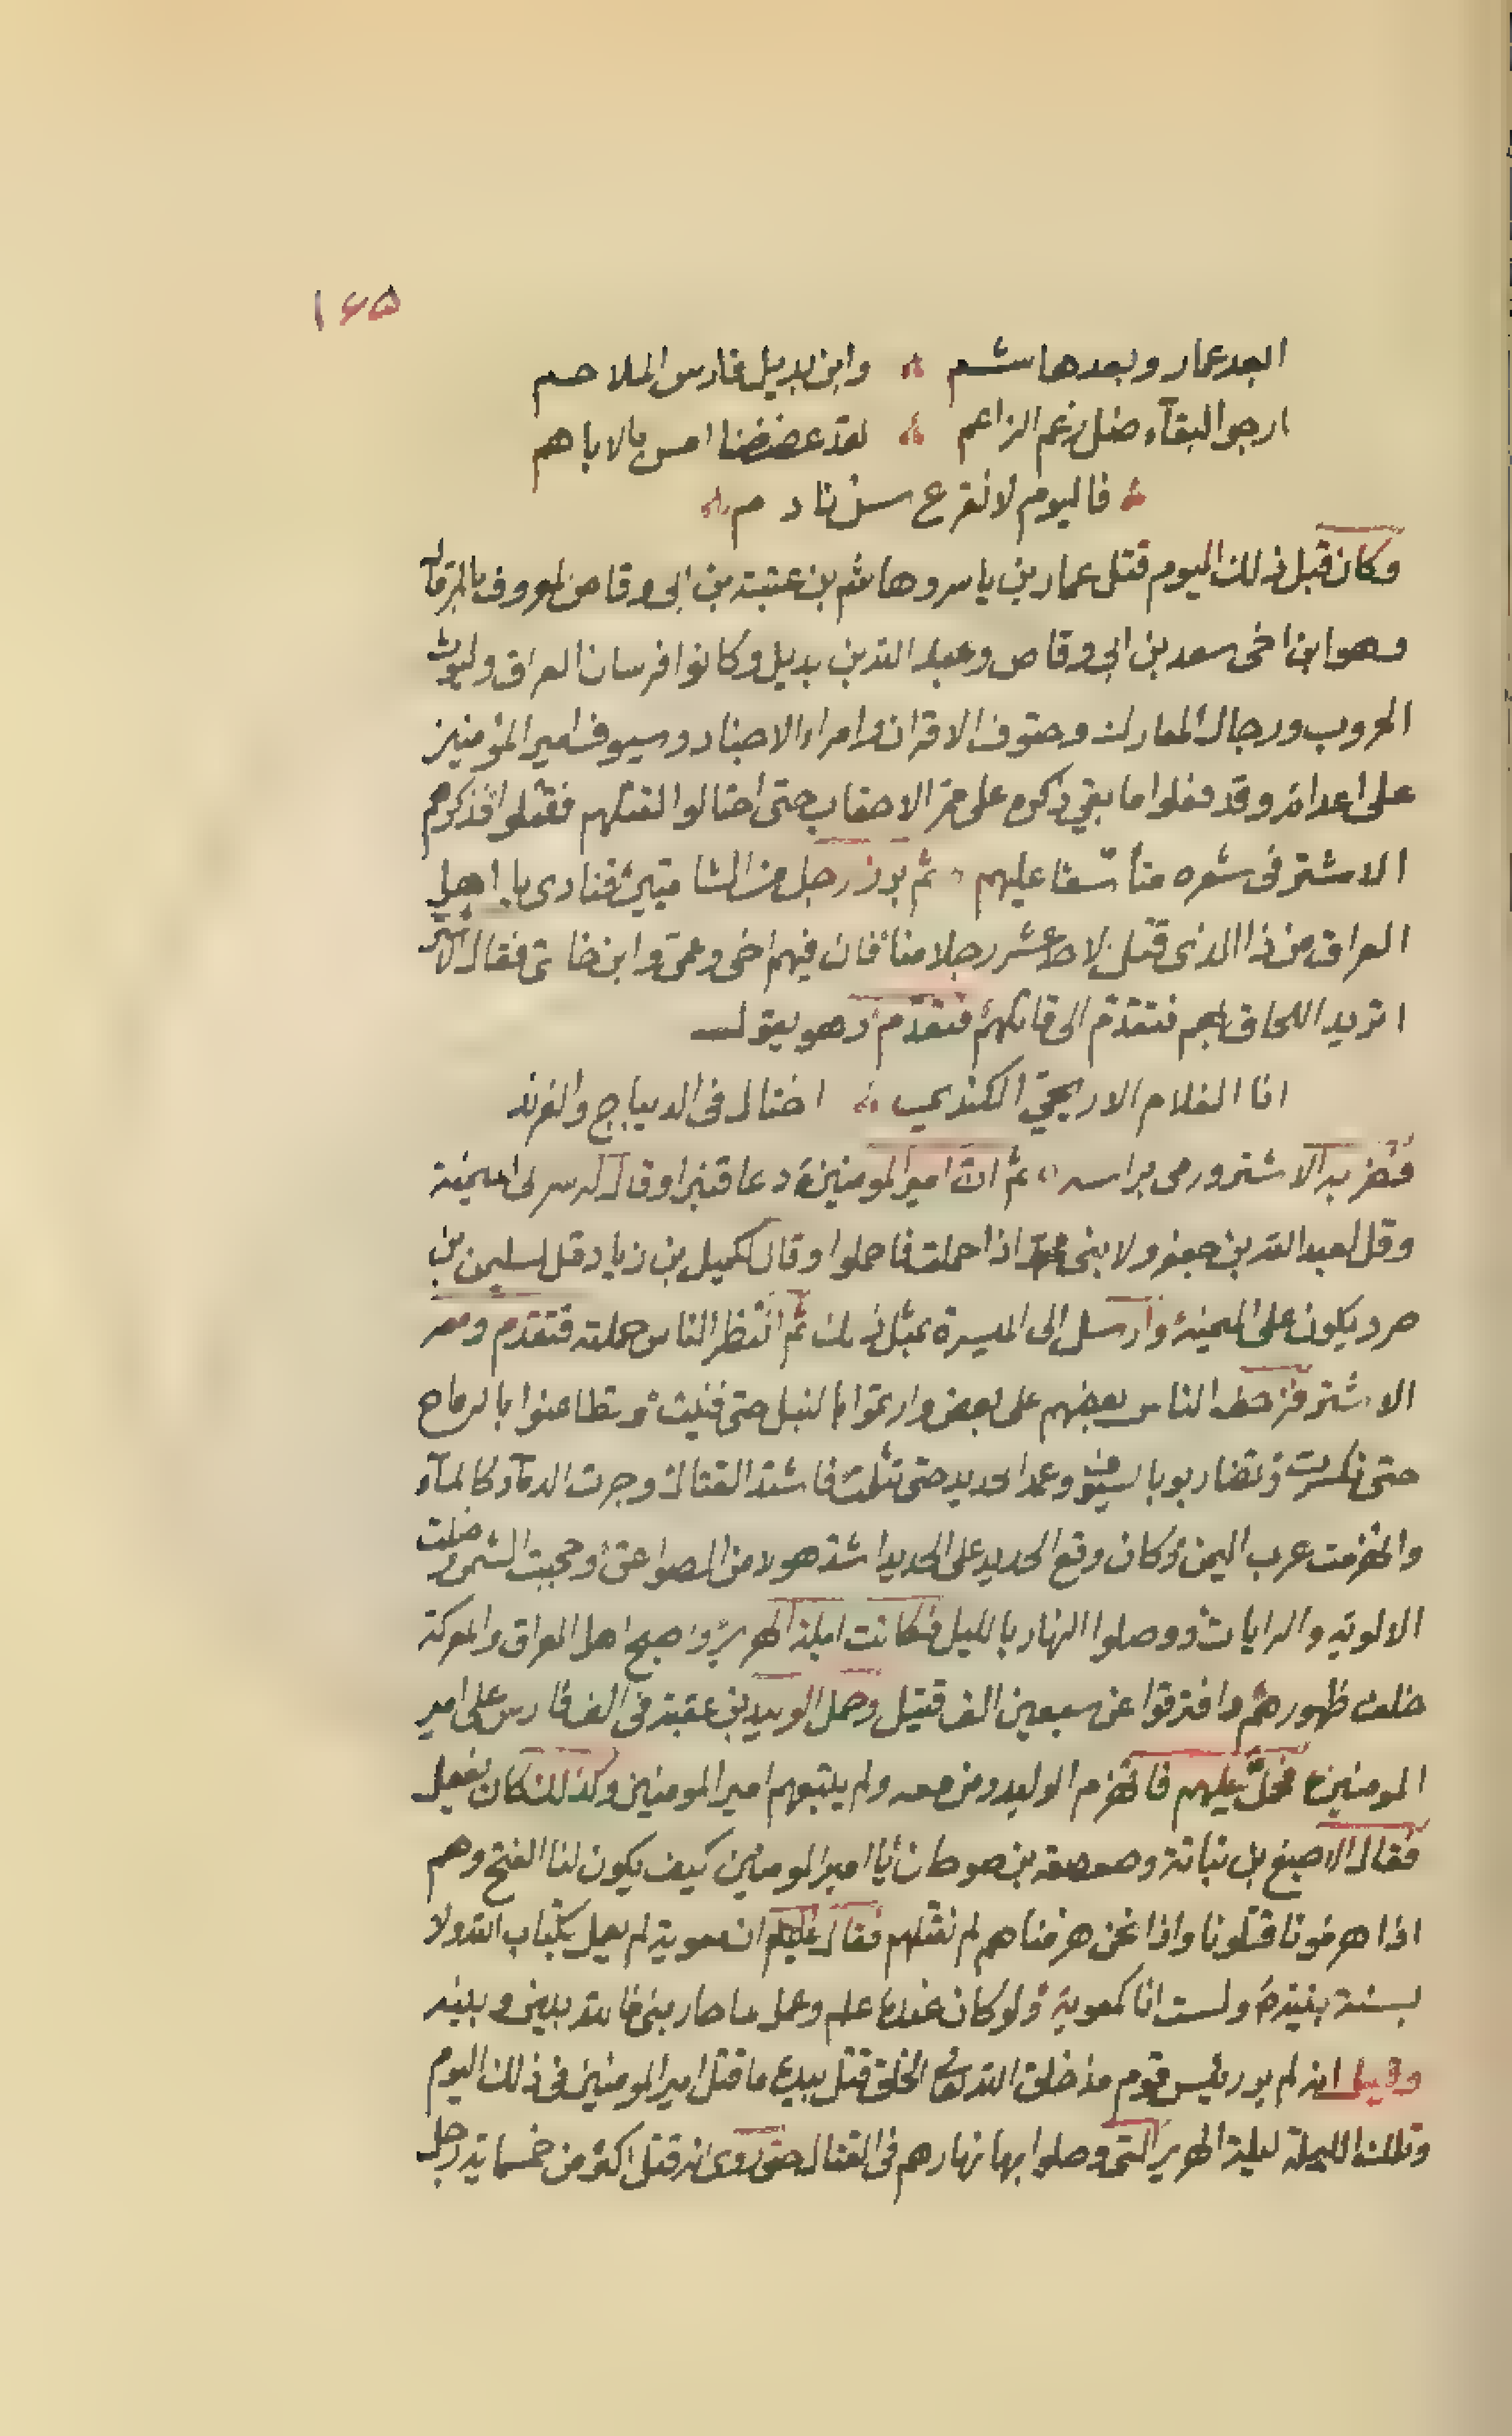 ١٦٥
ابعد عمار وبعد هاشم وابن بديل فارس الملاحم
ارجو البقآء ضل زعم الزاعم لقد عضضنا امس بالاباهم
فاليوم لا نقرع سن نادم
وكان قبل ذلك اليوم قتل عمار بن ياسر وهاشم بن عتبة بن ابى وقاص المعروف بالمرقال
وهو ابن اخى سعد بن ابى وقاص وعبد الله بن بديل وكانوا فرسان العراق وليوث
الحروب ورجال المعارك وحتوف الاقران وامراء الاجناد وسيوف امير المؤمنين
على اعدائه وقد فعلوا ما بقى ذكره على ممر الاحقاب حتى احتالوا لقتلهم فقتلوا فذكرهم
الاشتر فى شعره متأسّفا عليهم ثم برز رجل من الشاميين فنادى يا اهل
العراق من ذا الذى قتل لاحد عشر رجلا منا فان فيهم اخى وعمى وابن خالتى فقال الاشتر
اتريد اللحاق بهم فتقدّم الى قاتلهم فتقدّم وهو يقول
انا الغلام الاريحيّ الكندى اختال فى الديباج والفرند
فضربه الاشتر ورمى براسه ثم انّ امير المومنين دعا قنبرا وقال له سر لى الميمنة
وقل لعبد الله بن جعفر ولابنى محمد اذا حملت فاحملوا وقال لكميل بن زياد قل لسليمن بن
صرد يكون على الميمنة وارسل الى الميسرة بمثل ذلك ثم انتظر الناس حملته فتقدم ومعه
الاشتر فزحف الناس بعضهم على بعض وارتموا بالنبل حتى فنيت وتطاعنوا بالرماح
حتى تكسرت وتضاربو بالسيوف وعمد الحديد حتى تثلمت فاشتد القتال وجرت الدمآء كالمآء
وانهزمت عرب اليمن وكان وقع الحديد على الحديد اشد هولا من الصواعق وحجبت الشمس وضلت
الالوية والرايات ووصلوا النهار بالليل فكانت ليلة الهرير واصبح اهل العراق والمعركة
خلف ظهورهم وافترقوا عن سبعين الف قتيل وحمل الوليد بن عقبة فى الف فارس على امير
المومنين فحمل عليهم فانهزم الوليد ومن معه ولم يتبعهم امير المومنين وكذلك كان يفعل
فقال الاصبغ بن نباتة وصعصعة بن صوحان يا امير المومنين كيف يكون لنا الفتح وهم
اذا هزمونا قتلونا واذا نحن هزمناهم لم نقتلهم فقال عليه ان معوية لم يعمل بكتاب الله ولا
بسنة نبيّه ولست انا كمعوية ولو كان عنده علم وعمل ما حاربنى فالله بينى وبينه
وقيل انه لم ير رئيس قوم مذ خلق الله تعالى الخلق قتل بيده ما قتل امير المومنين فى ذلك اليوم
وتلك الليلة ليلة الهرير التى وصلوا بها نهارهم فى القتال حتى روى انه قتل اكثر من خمسمائة رجل